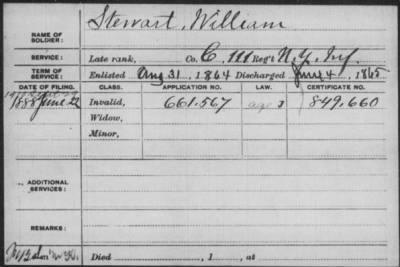 NAME OF SOLDIER: Stewart, William
SERVICE: Late rank, Co. C, 111 Reg't N.Y. Inf.
TERM OF SERVICE: Enlisted Aug 31, 1864 Discharged June 4, 1865
DATE OF FILING. CLASS. APPLICATION NO. LAW. CERTIFICATE NO.
1888 June 22 Invalid, 661.567 849.660
Widow,
Minor,
ADDITIONAL SERVICES:
REMARKS:
Died , 1 , at